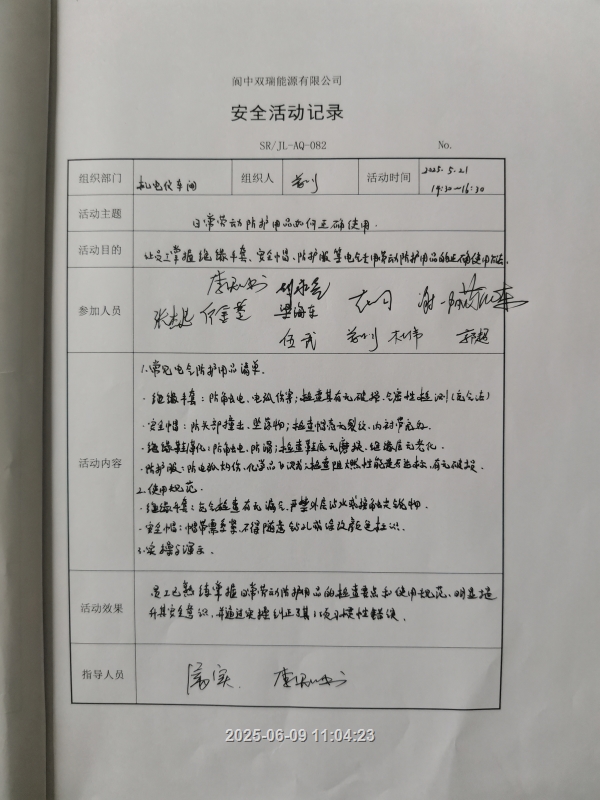 阆中双瑞能源有限公司
安全活动记录
SR/JL-AQ-082 No.
组织部门 机电仪车间 组织人 活动时间 2025.5.21
14:30~16:30
活动主题 日常劳动防护用品如何正确使用.
活动目的 让员工掌握绝缘手套、安全帽、防护服等电气专用劳动防护用品的正确使用方法.
参加人员
梁海东
伍武 郭超
活动内容
1.常见电气防护用品清单.
·绝缘手套：防触电、电弧伤害;检查其有无破损、气密性检测(充气法)
·安全帽：防头部撞击、坠落物;检查帽壳无裂纹、内衬带完好.
·绝缘鞋：防触电、防滑;检查鞋底无磨损、绝缘层无老化.
·防护服：防电弧灼伤、化学品飞溅;检查阻燃性能是否达标,有无破损.
2.使用规范.
·绝缘手套：充气检查有无漏气,严禁外层沾水或接触尖锐物.
·安全帽：帽带需系紧,不得随意钻孔或涂改颜色标识.
3.实操与演示.
活动效果
员工已熟练掌握日常劳动防护用品的检查要点和使用规范、明显提
升其安全意识,并通过实操纠正了其习惯性错误.
指导人员
2025-06-09 11:04:23